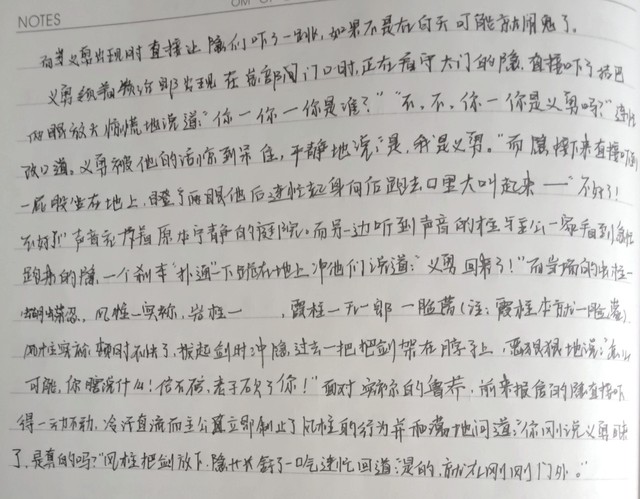 NOTES
而当义勇出现时直接让隐们吓了一跳,如果不是在白天可能就闹鬼了。
义勇 出现在总部间门口时,正在看守大门的隐,直接吓了
两眼放大惊慌地说道:“你一你一你是谁?”“不,不,你一你是义勇吗?”连忙
改口道。义勇被他的话惊到呆住,平静地说:“是,我是义勇。”而隐接下来直接吓
一屁股坐在地上,瞪了两眼他后连忙起身向后跑去口里大叫起来——“不好了!
不好了!”声音 原本宁静的庭院。而另一边听到声音的柱与主公一家看到
跑来的隐,一个刹车“扑通”一下跪在地上,冲他们说道:“义勇回来了!”而当场的出柱一
蝴蝶忍,风柱一实弥,岩柱一 ,霞柱一无一郎一脸蒙(注:霞柱本就一脸蒙)
风柱实弥,顿时不快了,拔起剑时冲隐,过去一把把剑架在脖子上,恶狠狠地说:“怎么
可能,你瞎说什么!信不信,老子砍了你!”面对实弥的 ,前来报信的隐直接吓
得一动不动,冷汗直流而主公直立即制止了风柱的行为并和蔼地问道:“你刚说义勇回来
了,是真的吗?”风柱把剑放下,隐才长舒了一口气连忙回道:“是的,就在刚刚门外。”